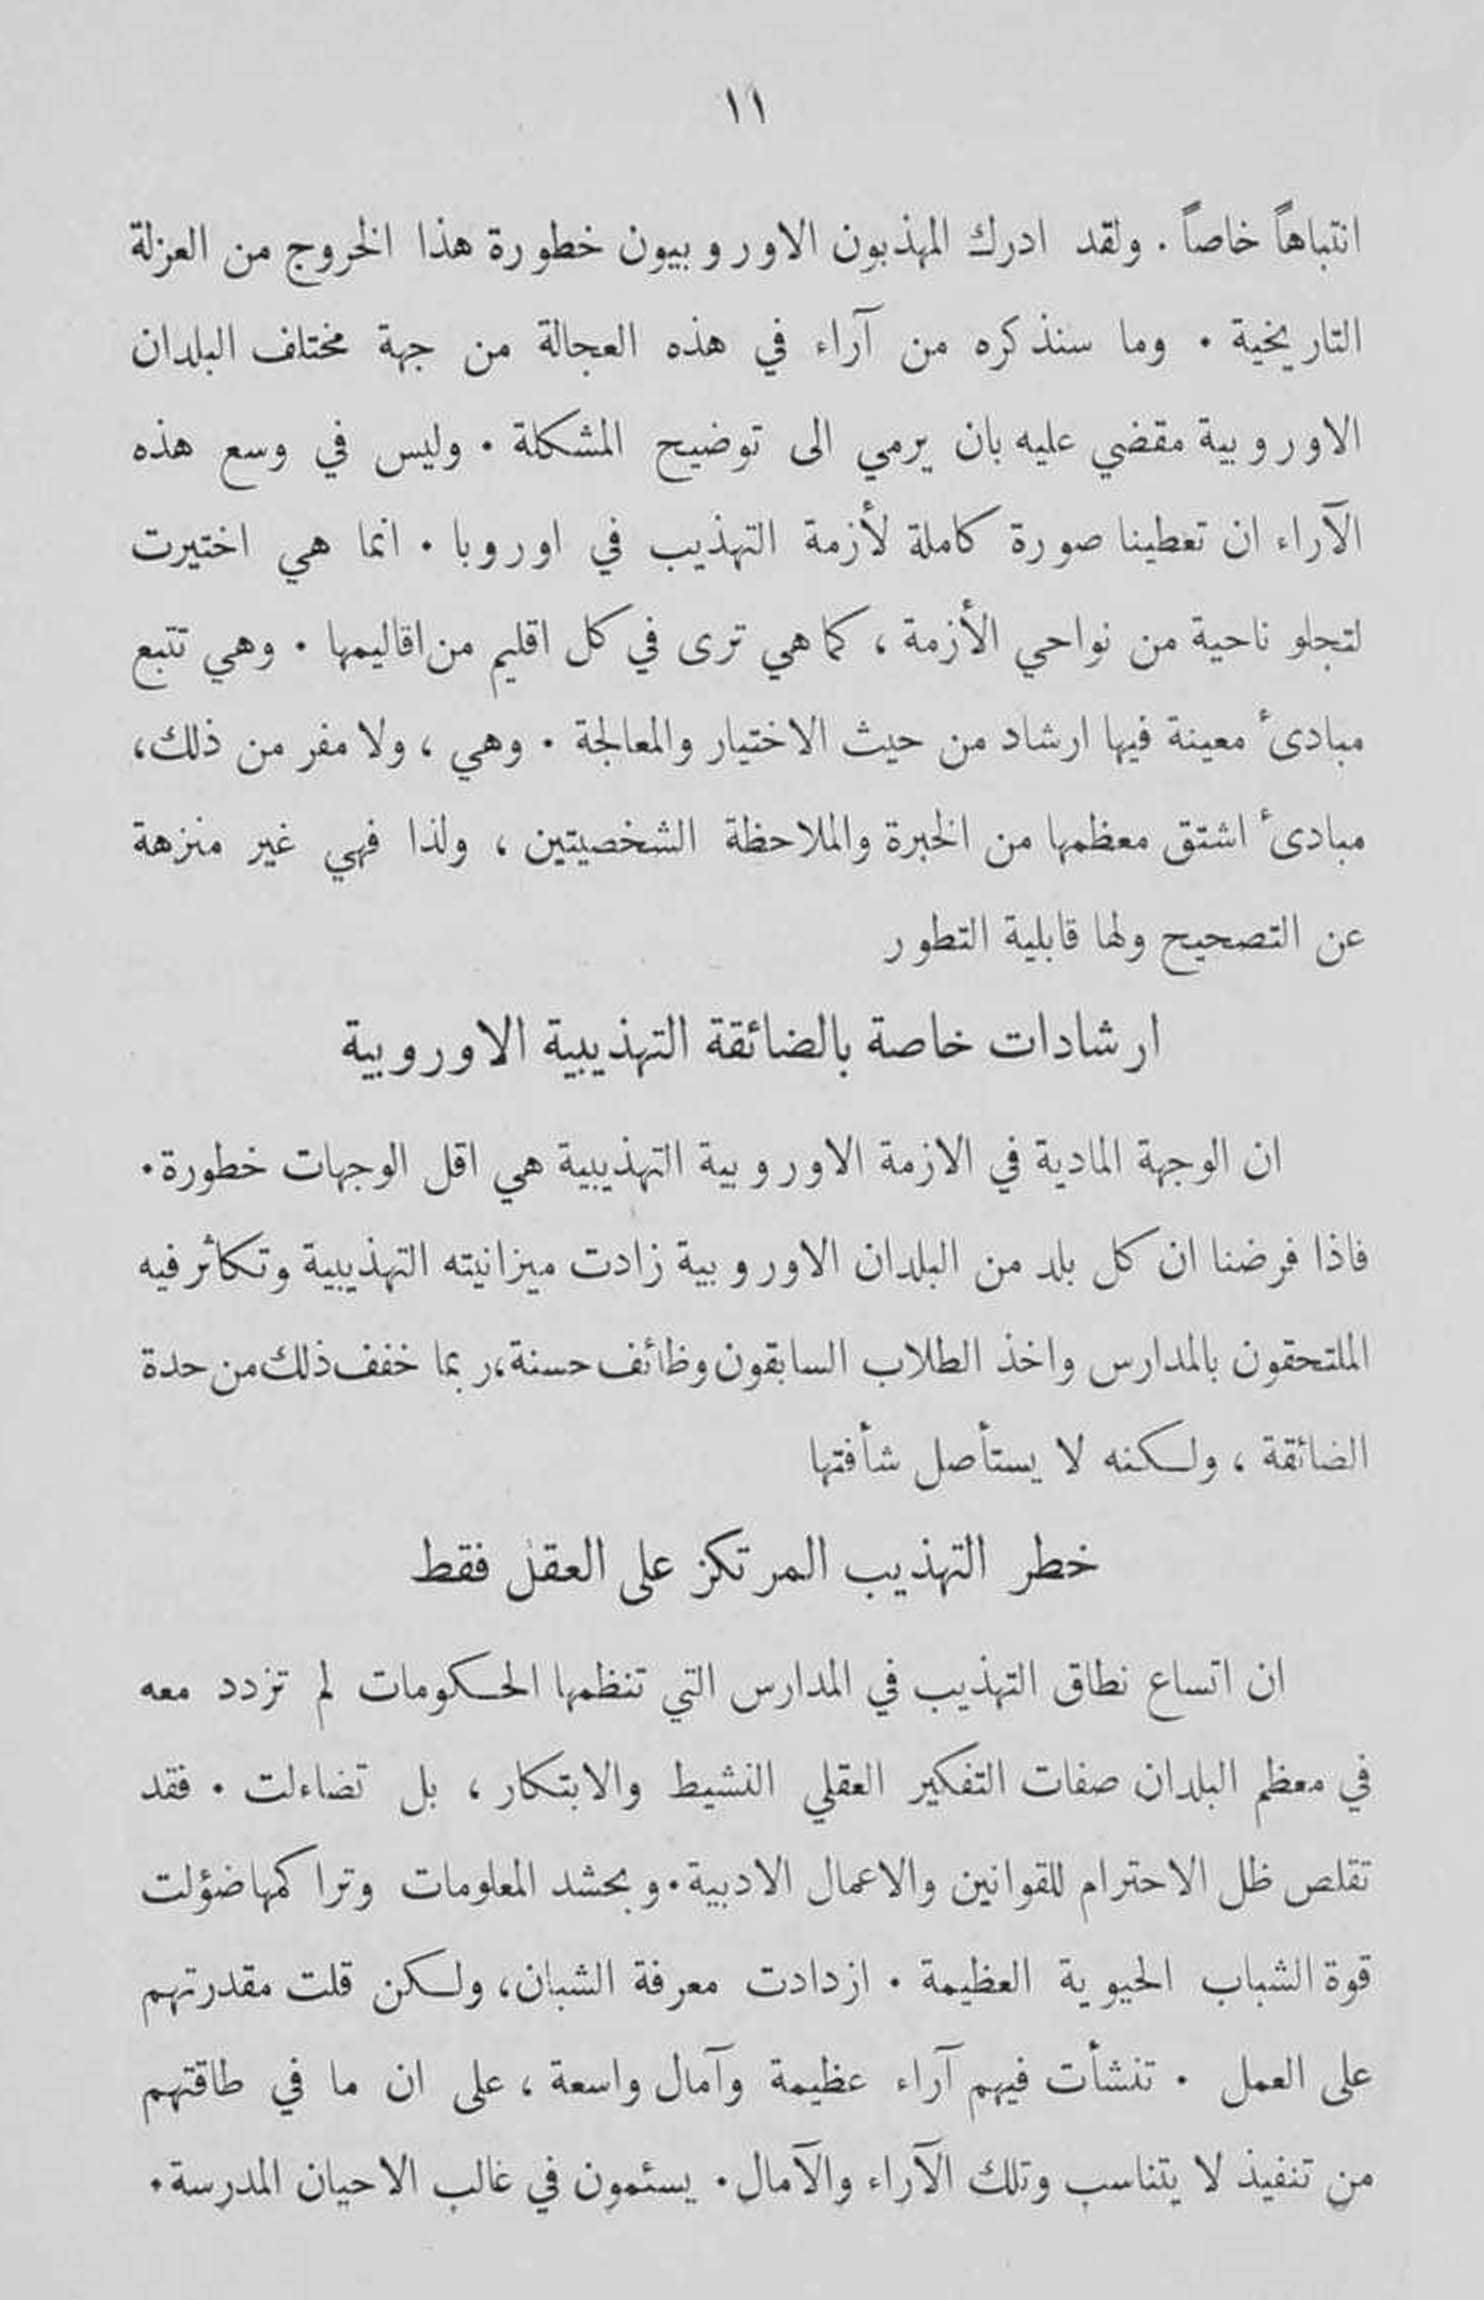 ١١
انتباهاً خاصاً . ولقد ادرك المهذبون الاوروبيون خطورة هذا الخروج من العزلة
التاريخية . وما سنذكره من آراء في هذه العجالة من جهة مختلف البلدان
الاوروبية مقضي عليه بان يرمي الى توضيح المشكلة . وليس في وسع هذه
الآراء ان تعطينا صورة كاملة لأزمة التهذيب في اوروبا . انما هي اختيرت
لتجلو ناحية من نواحي الأزمة ، كما هي ترى في كل اقليم من اقاليمها . وهي تتبع
مبادئ معينة فيها ارشاد من حيث الاختيار والمعالجة . وهي ، ولا مفر من ذلك،
مبادئ اشتق معظمها من الخبرة والملاحظة الشخصيتين ، ولذا فهي غير منزهة
عن التصحيح ولها قابلية التطور
ارشادات خاصة بالضائقة التهذيبية الاوروبية
ان الوجهة المادية في الازمة الاوروبية التهذيبية هي اقل الوجهات خطورة .
فاذا فرضنا ان كل بلد من البلدان الاوروبية زادت ميزانيته التهذيبية وتكاثر فيه
الملتحقون بالمدارس واخذ الطلاب السابقون وظائف حسنة، ربما خفف ذلك من حدة
الضائقة ، ولكنه لا يستأصل شأفتها
خطر التهذيب المرتكز على العقل فقط
ان اتساع نطاق التهذيب في المدارس التي تنظمها الحكومات لم تزدد معه
في معظم البلدان صفات التفكير العقلي النشيط والابتكار ، بل تضاءلت . فقد
تقلص ظل الاحترام للقوانين والاعمال الادبية . وبحشد المعلومات وتراكمها ضؤلت
قوة الشباب الحيوية العظيمة . ازدادت معرفة الشبان، ولكن قلت مقدرتهم
على العمل . تنشأت فيهم آراء عظيمة وآمال واسعة ، على ان ما في طاقتهم
من تنفيذ لا يتناسب وتلك الآراء والآمال . يسئمون في غالب الاحيان المدرسة .